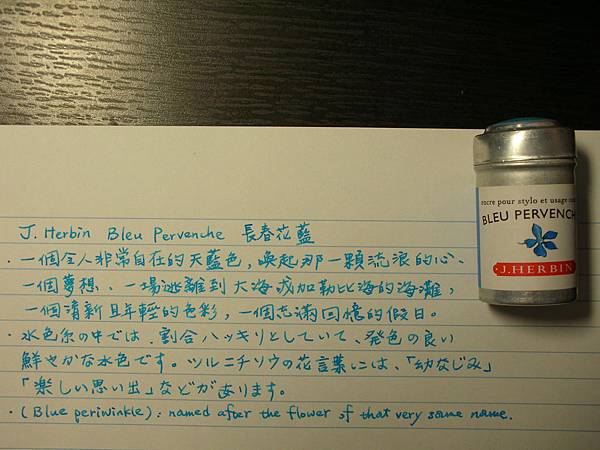 J. Herbin Bleu Pervenche 長春花藍
・一個令人非常自在的天藍色,喚起那一顆流浪的心、
一個夢想、一場逃離到大海或加勒比海的海灘,
一個清新且年輕的色彩,一個充滿回憶的假日。
・水色系の中では、割合ハッキリとしていて、発色の良い
鮮やかな水色です。ツルニチソウの花言葉には、「幼なじみ」
「楽しい思い出」などがあります。
・(Blue periwinkle): named after the flower of that very same name.
encre pour stylo et usage
BLEU PERVENCHE
J. HERBIN